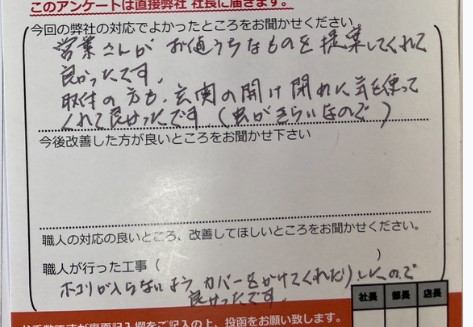 このアンケートは直接弊社 社長に届きます。
今回の弊社の対応でよかったところをお聞かせください。
営業さんが お値うちなものを提案してくれて
良かったです。
取付の方も、玄関の開け閉めに気を使って
くれて良かったです(虫がきらいなので)
今後改善した方が良いところをお聞かせ下さい
職人の対応の良いところ、改善してほしいところをお聞かせください。
職人が行った工事( )
ホコリが入らないよう、カバーをかけてくれたりしたので
良かったです。
社長 部長 店長
ご記入の上、投函をお願い致します。